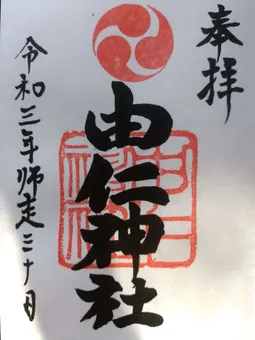 奉拝
由仁神社
令和三年師走三十日